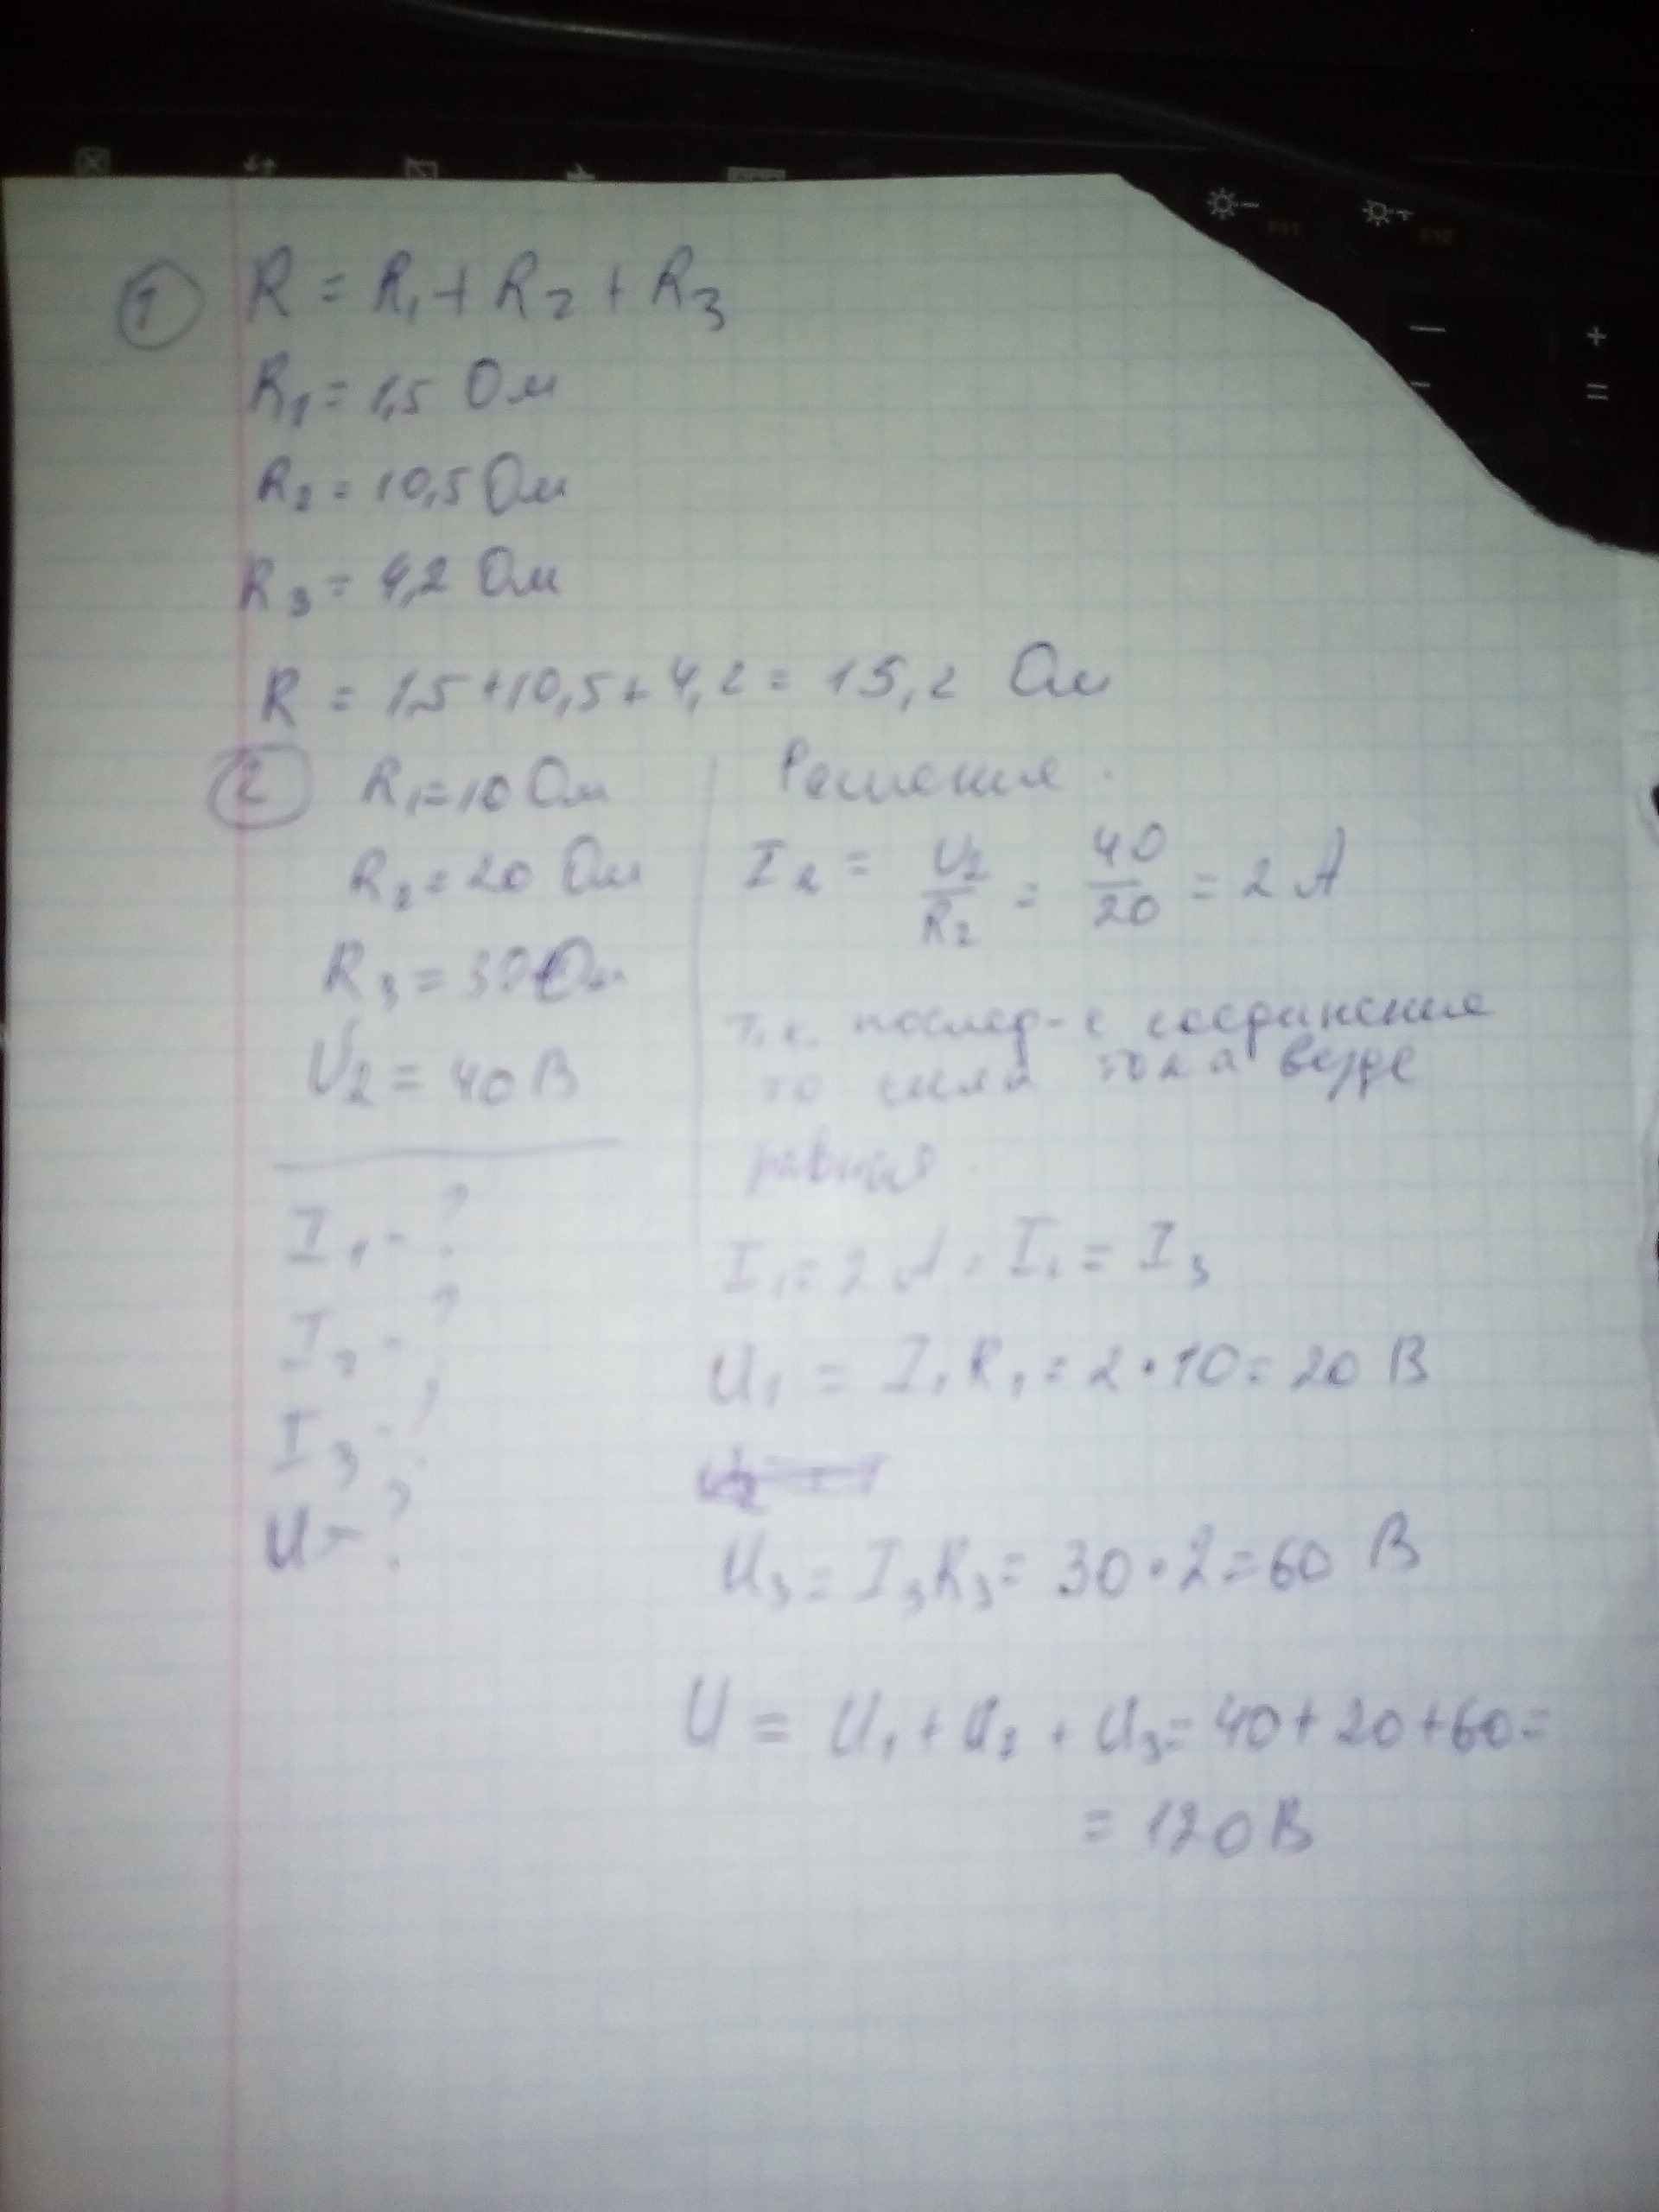 ① R = R₁ + R₂ + R₃
R₁ = 1,5 Ом
R₂ = 10,5 Ом
R₃ = 4,2 Ом
R = 1,5 + 10,5 + 4,2 = 15,2 Ом
② R₁ = 10 Ом
R₂ = 20 Ом
R₃ = 30 Ом
U₂ = 40 В
I₁ - ?
I₂ - ?
I₃ - ?
U - ?
Решение.
I₂ = U₂/R₂ = 40/20 = 2 А
т.к. послед-е соединение
то сила тока везде
равная.
I₁ = 2 А = I₂ = I₃
U₁ = I₁R₁ = 2 · 10 = 20 В
U₃ = I₃R₃ = 30 · 2 = 60 В
U = U₁ + U₂ + U₃ = 40 + 20 + 60 =
= 120 В
F11
F12
- +
- =